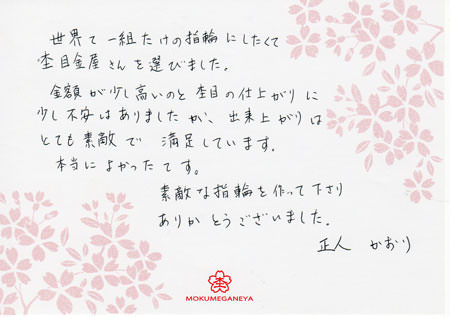 世界で一組だけの指輪にしたくて
杢目金屋さんを選びました。
金額が少し高いのと杢目の仕上がりに
少し不安はありましたが、出来上がりは
とても素敵で満足しています。
本当によかったです。
素敵な指輪を作って下さり
ありがとうございました。
正人 かおり
杢
MOKUMEGANEYA